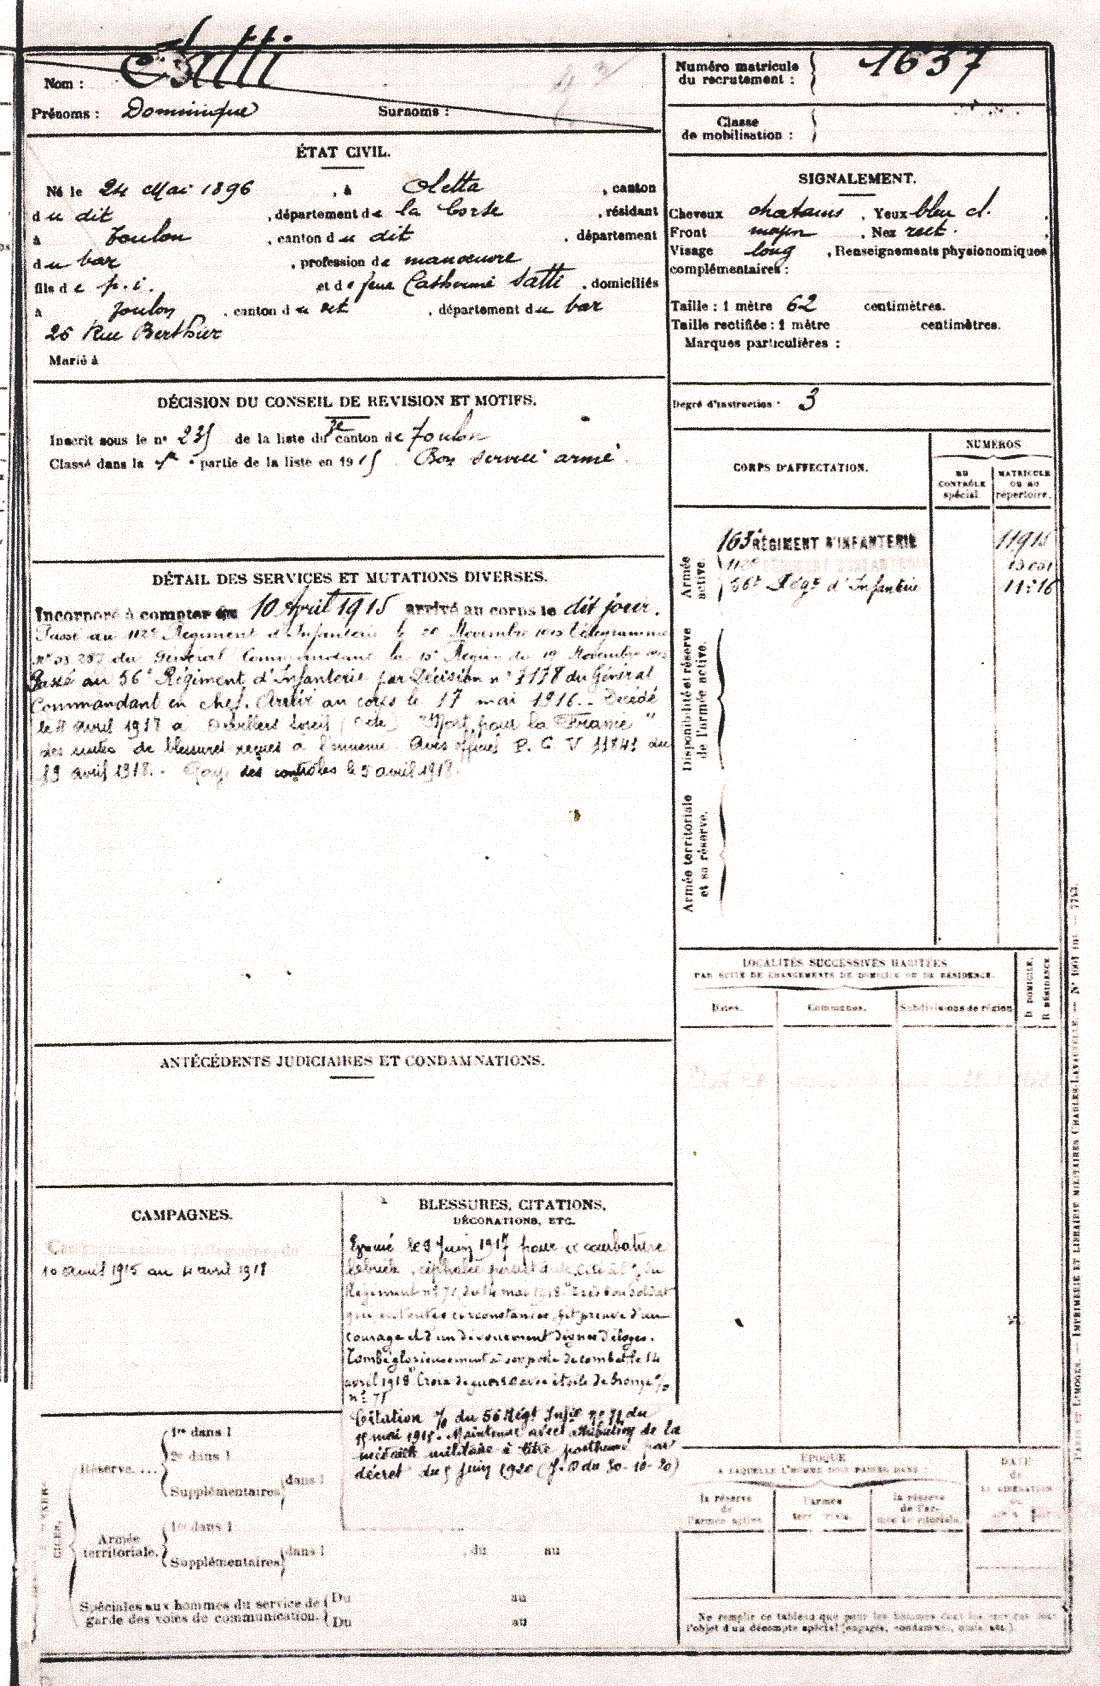 Nom : Satti
Prénoms : Dominique Surnoms :
Numéro matricule
du recrutement : 1637
Classe
de mobilisation :
ÉTAT CIVIL.
Né le 24 Mai 1896, à Oletta, canton
du dit, département de la Corse, résidant
à Toulon, canton du dit, département
du Var, profession de manœuvre
fils de p. i. et de feue Catherine Satti, domiciliés
à Toulon, canton du dit, département du Var
26 Rue Berthier
Marié à
SIGNALEMENT.
Cheveux chatains, Yeux bleu cl.
Front moyen, Nez rect.
Visage long, Renseignements physionomiques
complémentaires :
Taille : 1 mètre 62 centimètres.
Taille rectifiée : 1 mètre centimètres.
Marques particulières :
Degré d'instruction : 3
DÉCISION DU CONSEIL DE REVISION ET MOTIFS.
Inscrit sous le n° 235 de la liste du canton de Toulon
Classé dans la 1re partie de la liste en 1915. Bon service armé.
CORPS D'AFFECTATION.
NUMÉROS
AU
CONTRÔLE
spécial.
MATRICULE
OU AU
répertoire.
Armée
active.
163e RÉGIMENT D'INFANTERIE 11915
112e RÉGIMENT D'INFANTERIE
56e Régt d'Infanterie
Disponibilité et réserve
de l'armée active.
Armée territoriale
et sa réserve.
DÉTAIL DES SERVICES ET MUTATIONS DIVERSES.
Incorporé à compter du 10 Avril 1915 arrivé au corps le dit jour.
Passé au 112e Régiment d'Infanterie le 20 Novembre 1915 télégramme
du Général Commandant la 15e Région du 19 Novembre 1915
Passé au 56e Régiment d'Infanterie par Décision n° 7178 du Général
Commandant en chef. Arrivé au corps le 17 mai 1916. Décédé
le 4 avril 1918 à (Oise) "Mort pour la France"
des suites de blessures reçues à l'ennemi. Avis officiel P. C. V 11841 du
19 avril 1918. Rayé des contrôles le 5 avril 1918.
LOCALITÉS SUCCESSIVES HABITÉES
PAR SUITE DE CHANGEMENTS DE DOMICILE OU DE RÉSIDENCE.
Dates. Communes. Subdivisions de région
D. DOMICILE.
R. RÉSIDENCE.
ANTÉCÉDENTS JUDICIAIRES ET CONDAMNATIONS.
CAMPAGNES.
Campagne contre l'Allemagne du
10 avril 1915 au 4 avril 1918
BLESSURES, CITATIONS,
DÉCORATIONS, ETC.
Evacué le 9 Juin 1917 pour courbature
fébrile, céphalée Cité à l'o/ du
Régiment n° 71, du 14 mai 1918 "Très bon soldat
qui en toutes circonstances, fit preuve d'un
courage et d'un dévouement dignes d'éloges.
Tombé glorieusement à son poste de combat le 14
avril 1918" Croix de guerre avec étoile de bronze
n° 71
Citation du 56 Régt Infie n° 71 du
15 mai 1918. Maintenue avec attribution de la
médaille militaire à titre posthume par
décret du 5 juin 1920 (J.O du 30-10-20)
Réserve....
1re dans l
2e dans l
Supplémentaires dans l
Armée
territoriale.
1re dans l
Supplémentaires dans l , du au
Spéciales aux hommes du service de
garde des voies de communication.
Du au
Du au
ÉPOQUE
A LAQUELLE L'HOMME DOIT PASSER DANS :
la réserve
de
l'armée active
l'armée
territoriale.
la réserve
de l'ar-
mée territoriale.
DATE
de
LA LIBÉRATION
Ne remplir ce tableau que pour les hommes dont les services font
l'objet d'un décompte spécial (engagés, condamnés, omis, etc.).
PARIS ET LIMOGES. — IMPRIMERIE ET LIBRAIRIE MILITAIRES CHARLES-LAVAUZELLE.